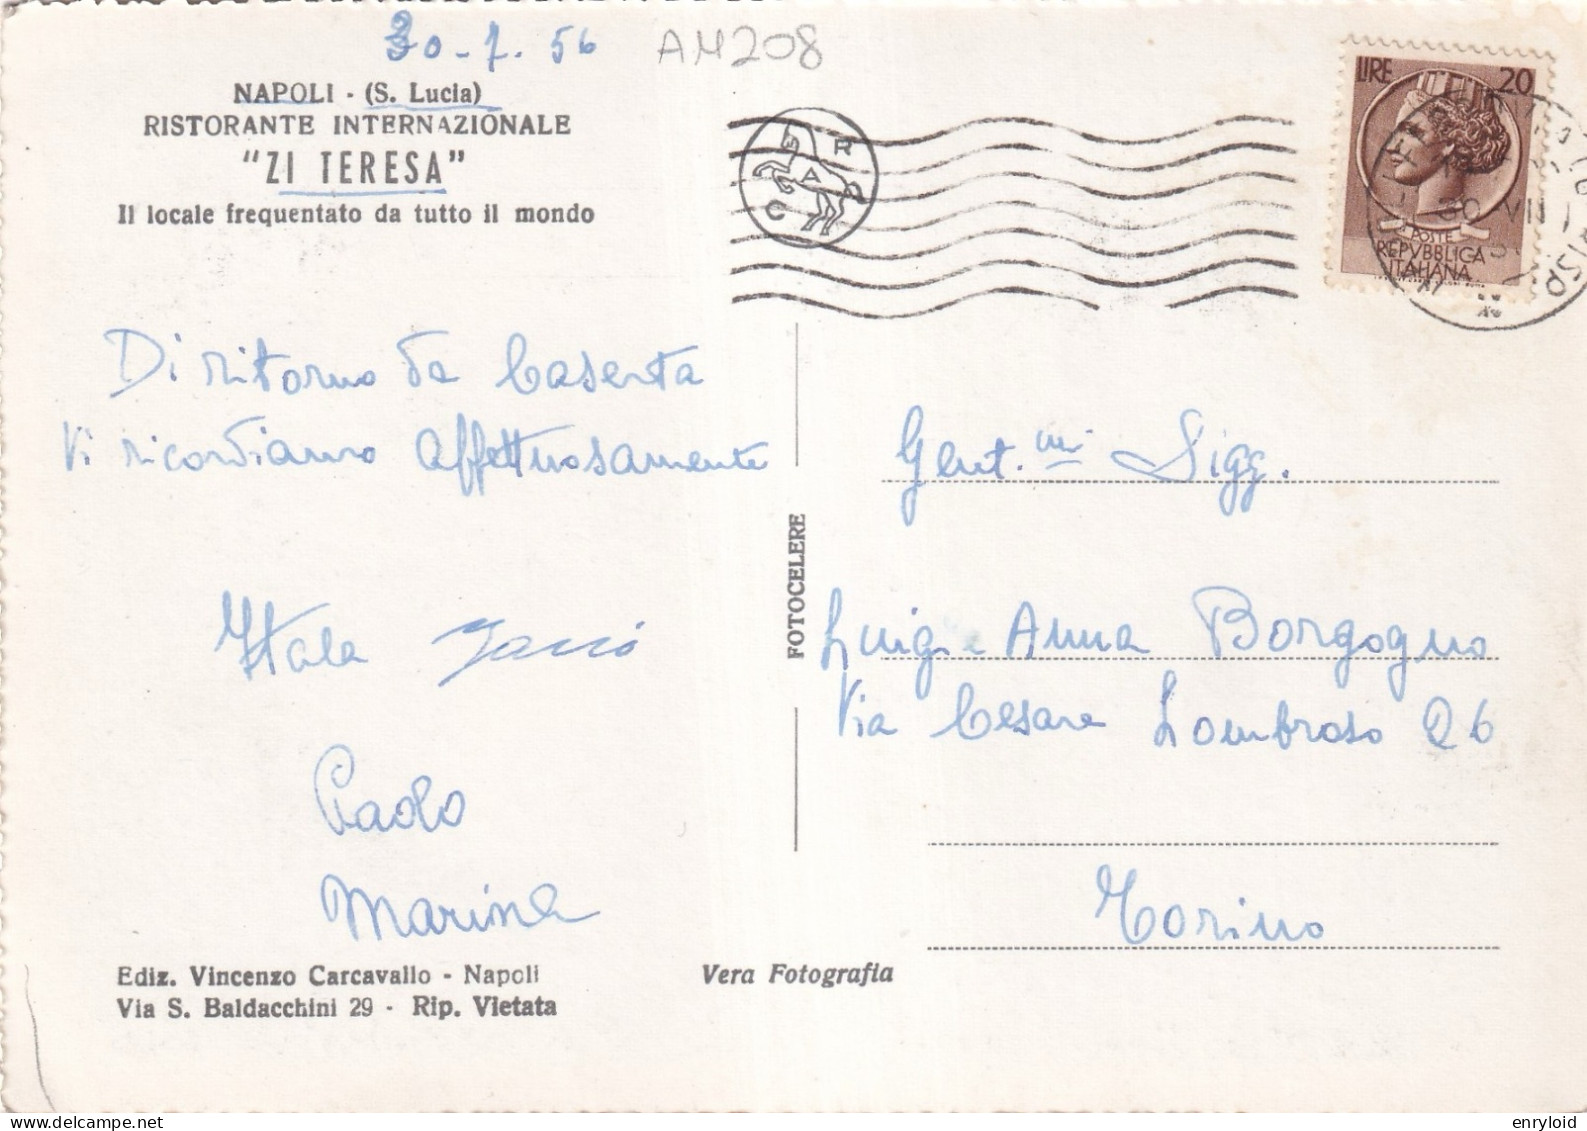 30-7.56
AM208
NAPOLI - (S. Lucia)
RISTORANTE INTERNAZIONALE
"ZI TERESA"
Il locale frequentato da tutto il mondo
LIRE 20
POSTE
REPVBBLICA
ITALIANA
30 VII
Di ritorno da Caserta
Vi ricordiamo affettuosamente
Itala
Paolo
Marina
FOTOCELERE
Gent.mi Sigg.
Luigi e Anna Borgogno
Via Cesare Lombroso 26
Torino
Ediz. Vincenzo Carcavallo - Napoli
Via S. Baldacchini 29 - Rip. Vietata
Vera Fotografia
enryloid
delcampe.net